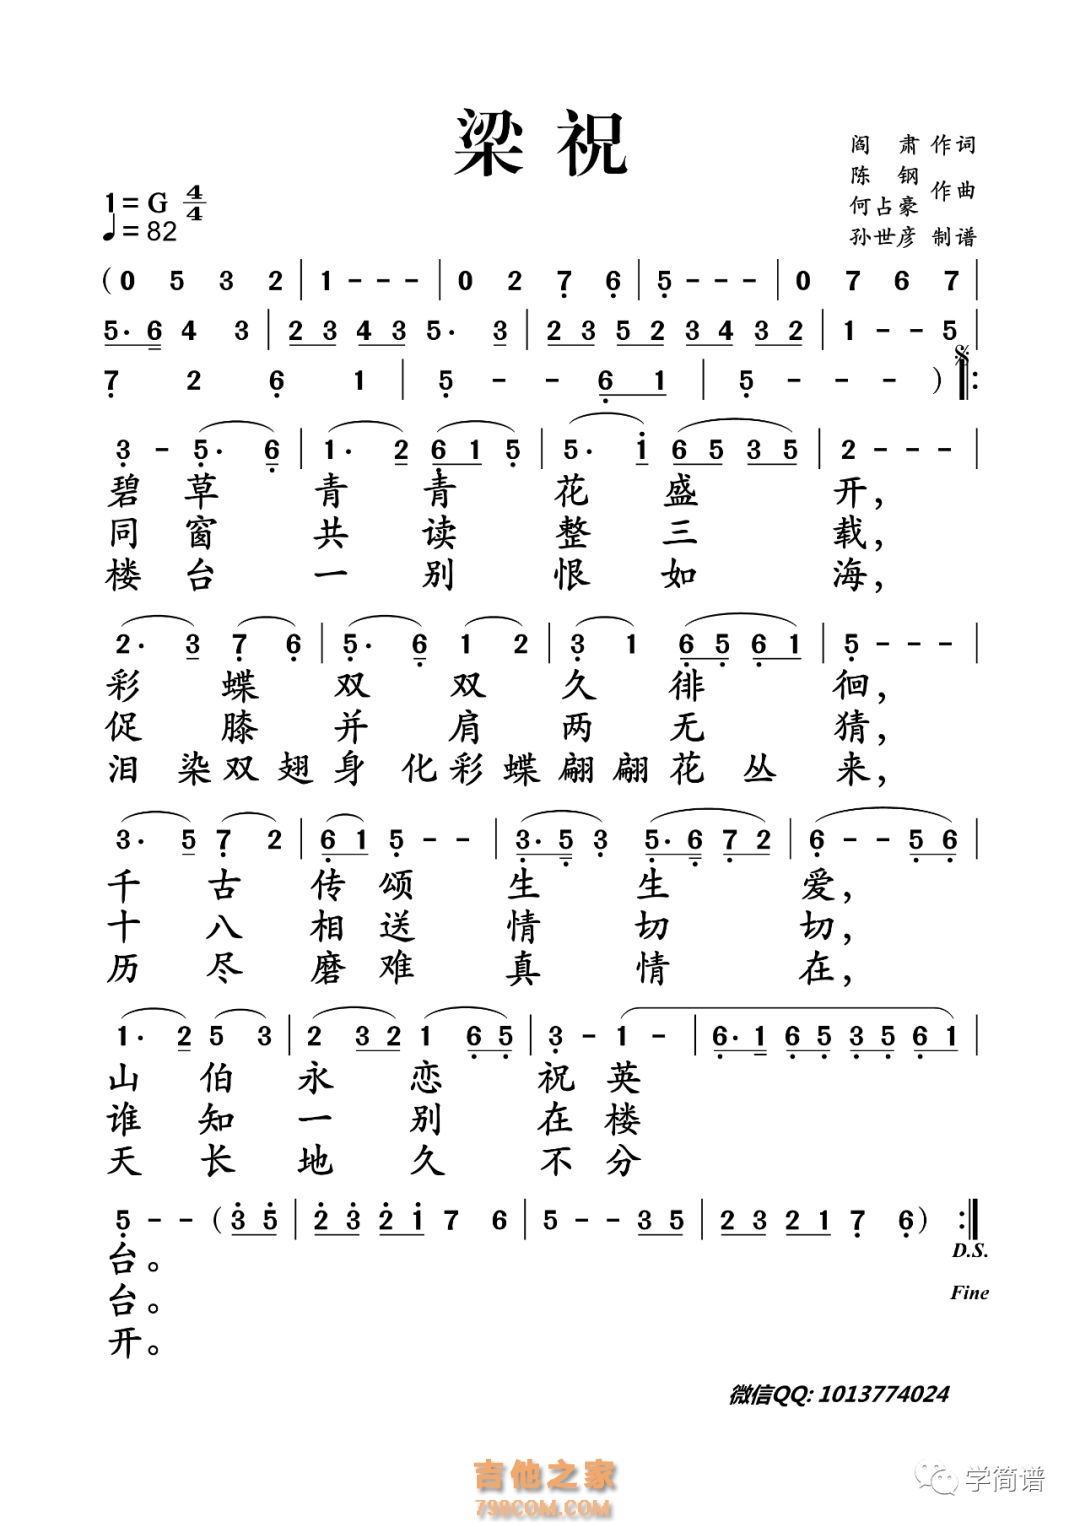 梁祝
阎肃 作词
陈钢
何占豪 作曲
孙世彦 制谱
1=G 4/4
♩=82
(0 5 3 2 | 1 - - - | 0 2 7̣ 6̣ | 5̣ - - - | 0 7 6 7 |
5· 6 4 3 | 2 3 4 3 5· 3 | 2 3 5 2 3 4 3 2 | 1 - - 5 |
7̣ 2 6̣ 1 | 5̣ - - 6̣ 1 | 5̣ - - - ) 𝄋 ‖:
3̣ - 5̣· 6̣ | 1· 2 6̣ 1 5̣ | 5· i 6 5 3 5 | 2 - - - |
碧草青青花盛开，
同窗共读整三载，
楼台一别恨如海，
2· 3 7̣ 6̣ | 5̣· 6̣ 1 2 | 3̣ 1 6̣ 5̣ 6̣ 1 | 5̣ - - - |
彩蝶双双久徘徊，
促膝并肩两无猜，
泪染双翅身化彩蝶翩翩花丛来，
3· 5 7̣ 2 | 6̣ 1 5̣ - - | 3̣· 5̣ 3̣ 5̣· 6̣ 7̣ 2 | 6̣ - - 5̣ 6̣ |
千古传颂生生爱，
十八相送情切切，
历尽磨难真情在，
1· 2 5 3 | 2 3 2 1 6̣ 5̣ | 3̣ - 1 - | 6̣· 1 6̣ 5̣ 3̣ 5̣ 6̣ 1 |
山伯永恋祝英
谁知一别在楼
天长地久不分
5̣ - - (3̇ 5̇ | 2̇ 3̇ 2̇ i 7 6 | 5 - - 3 5 | 2 3 2 1 7̣ 6̣) :‖
台。
台。
开。
D.S.
Fine
微信QQ: 1013774024
吉他之家
798COM.COM
学简谱